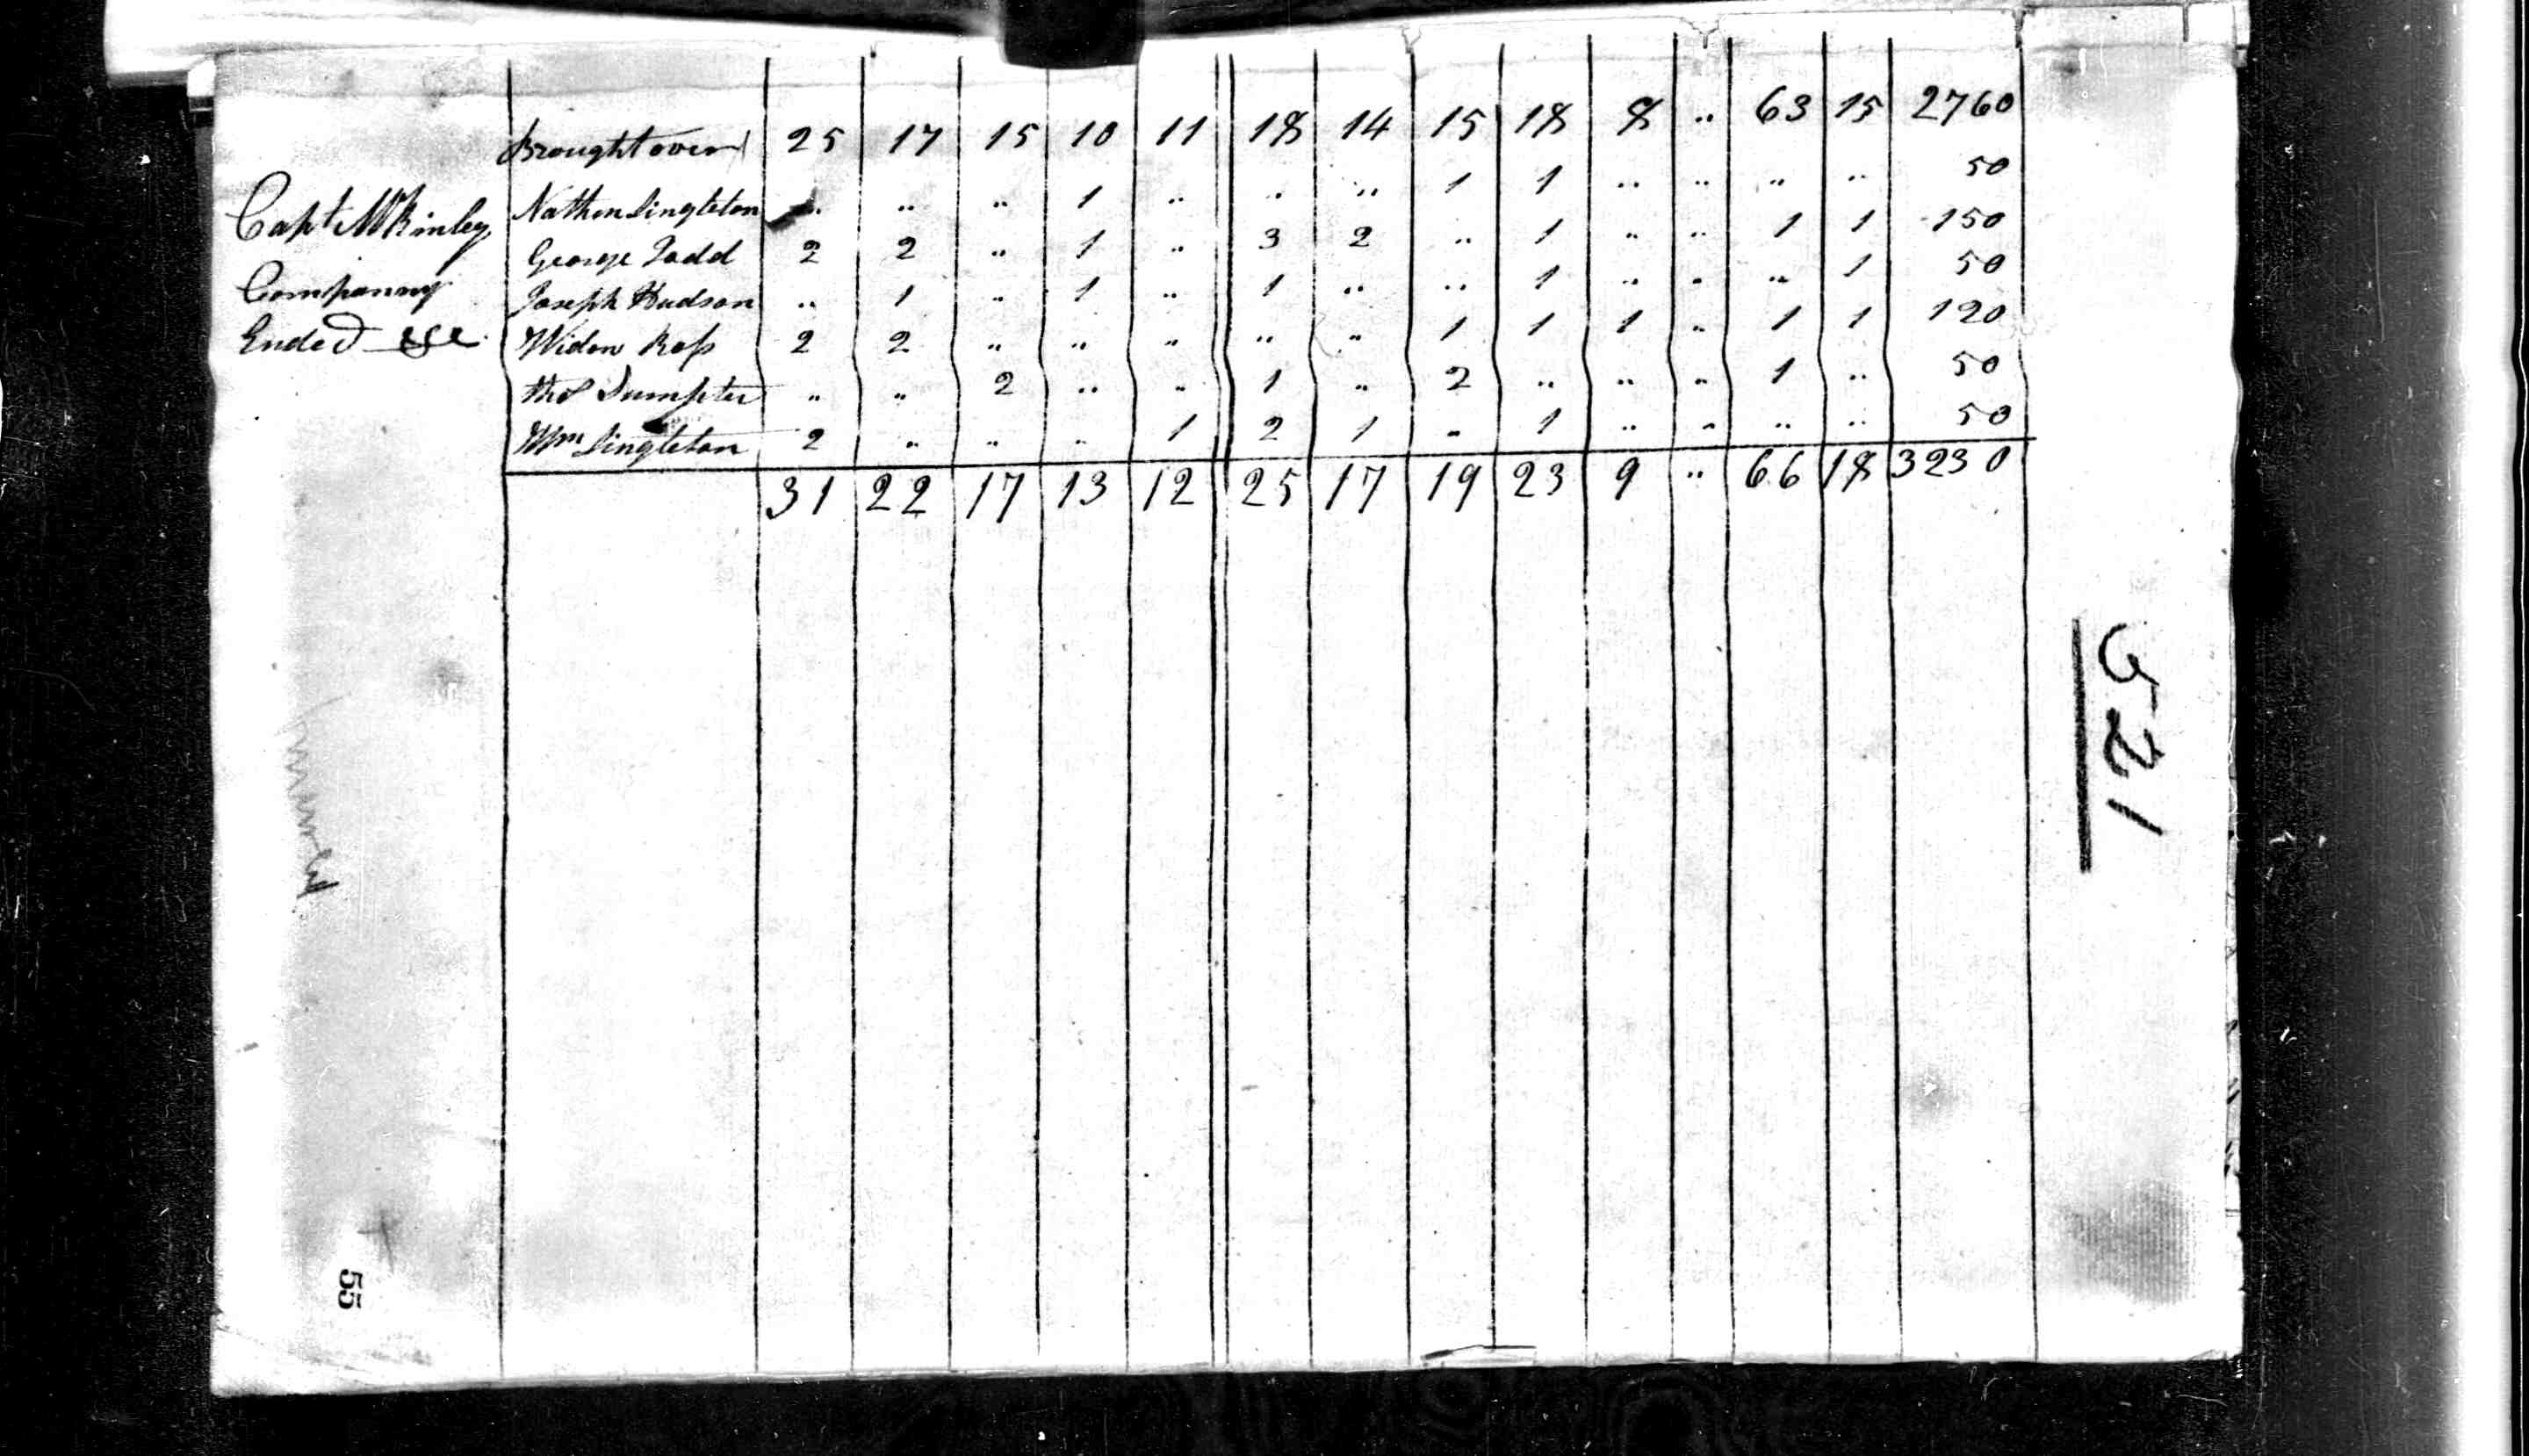 Brought over 25 17 15 10 11 18 14 15 18 8 .. 63 15 2760
Capt McKinley Nathan Singleton .. .. .. 1 .. .. .. 1 1 .. .. .. .. 50
George Todd 2 2 .. 1 .. 3 2 .. 1 .. .. 1 1 150
Companny Joseph Hudson .. 1 .. 1 .. 1 .. .. 1 .. .. .. 1 50
Ended Widow Ross 2 2 .. .. .. .. .. 1 1 1 .. 1 1 120
Thos Sumpter .. .. 2 .. .. 1 .. 2 .. .. .. 1 .. 50
Wm Singleton 2 .. .. .. 1 2 1 .. 1 .. .. .. .. 50
31 22 17 13 12 25 17 19 23 9 .. 66 18 3230
521
55